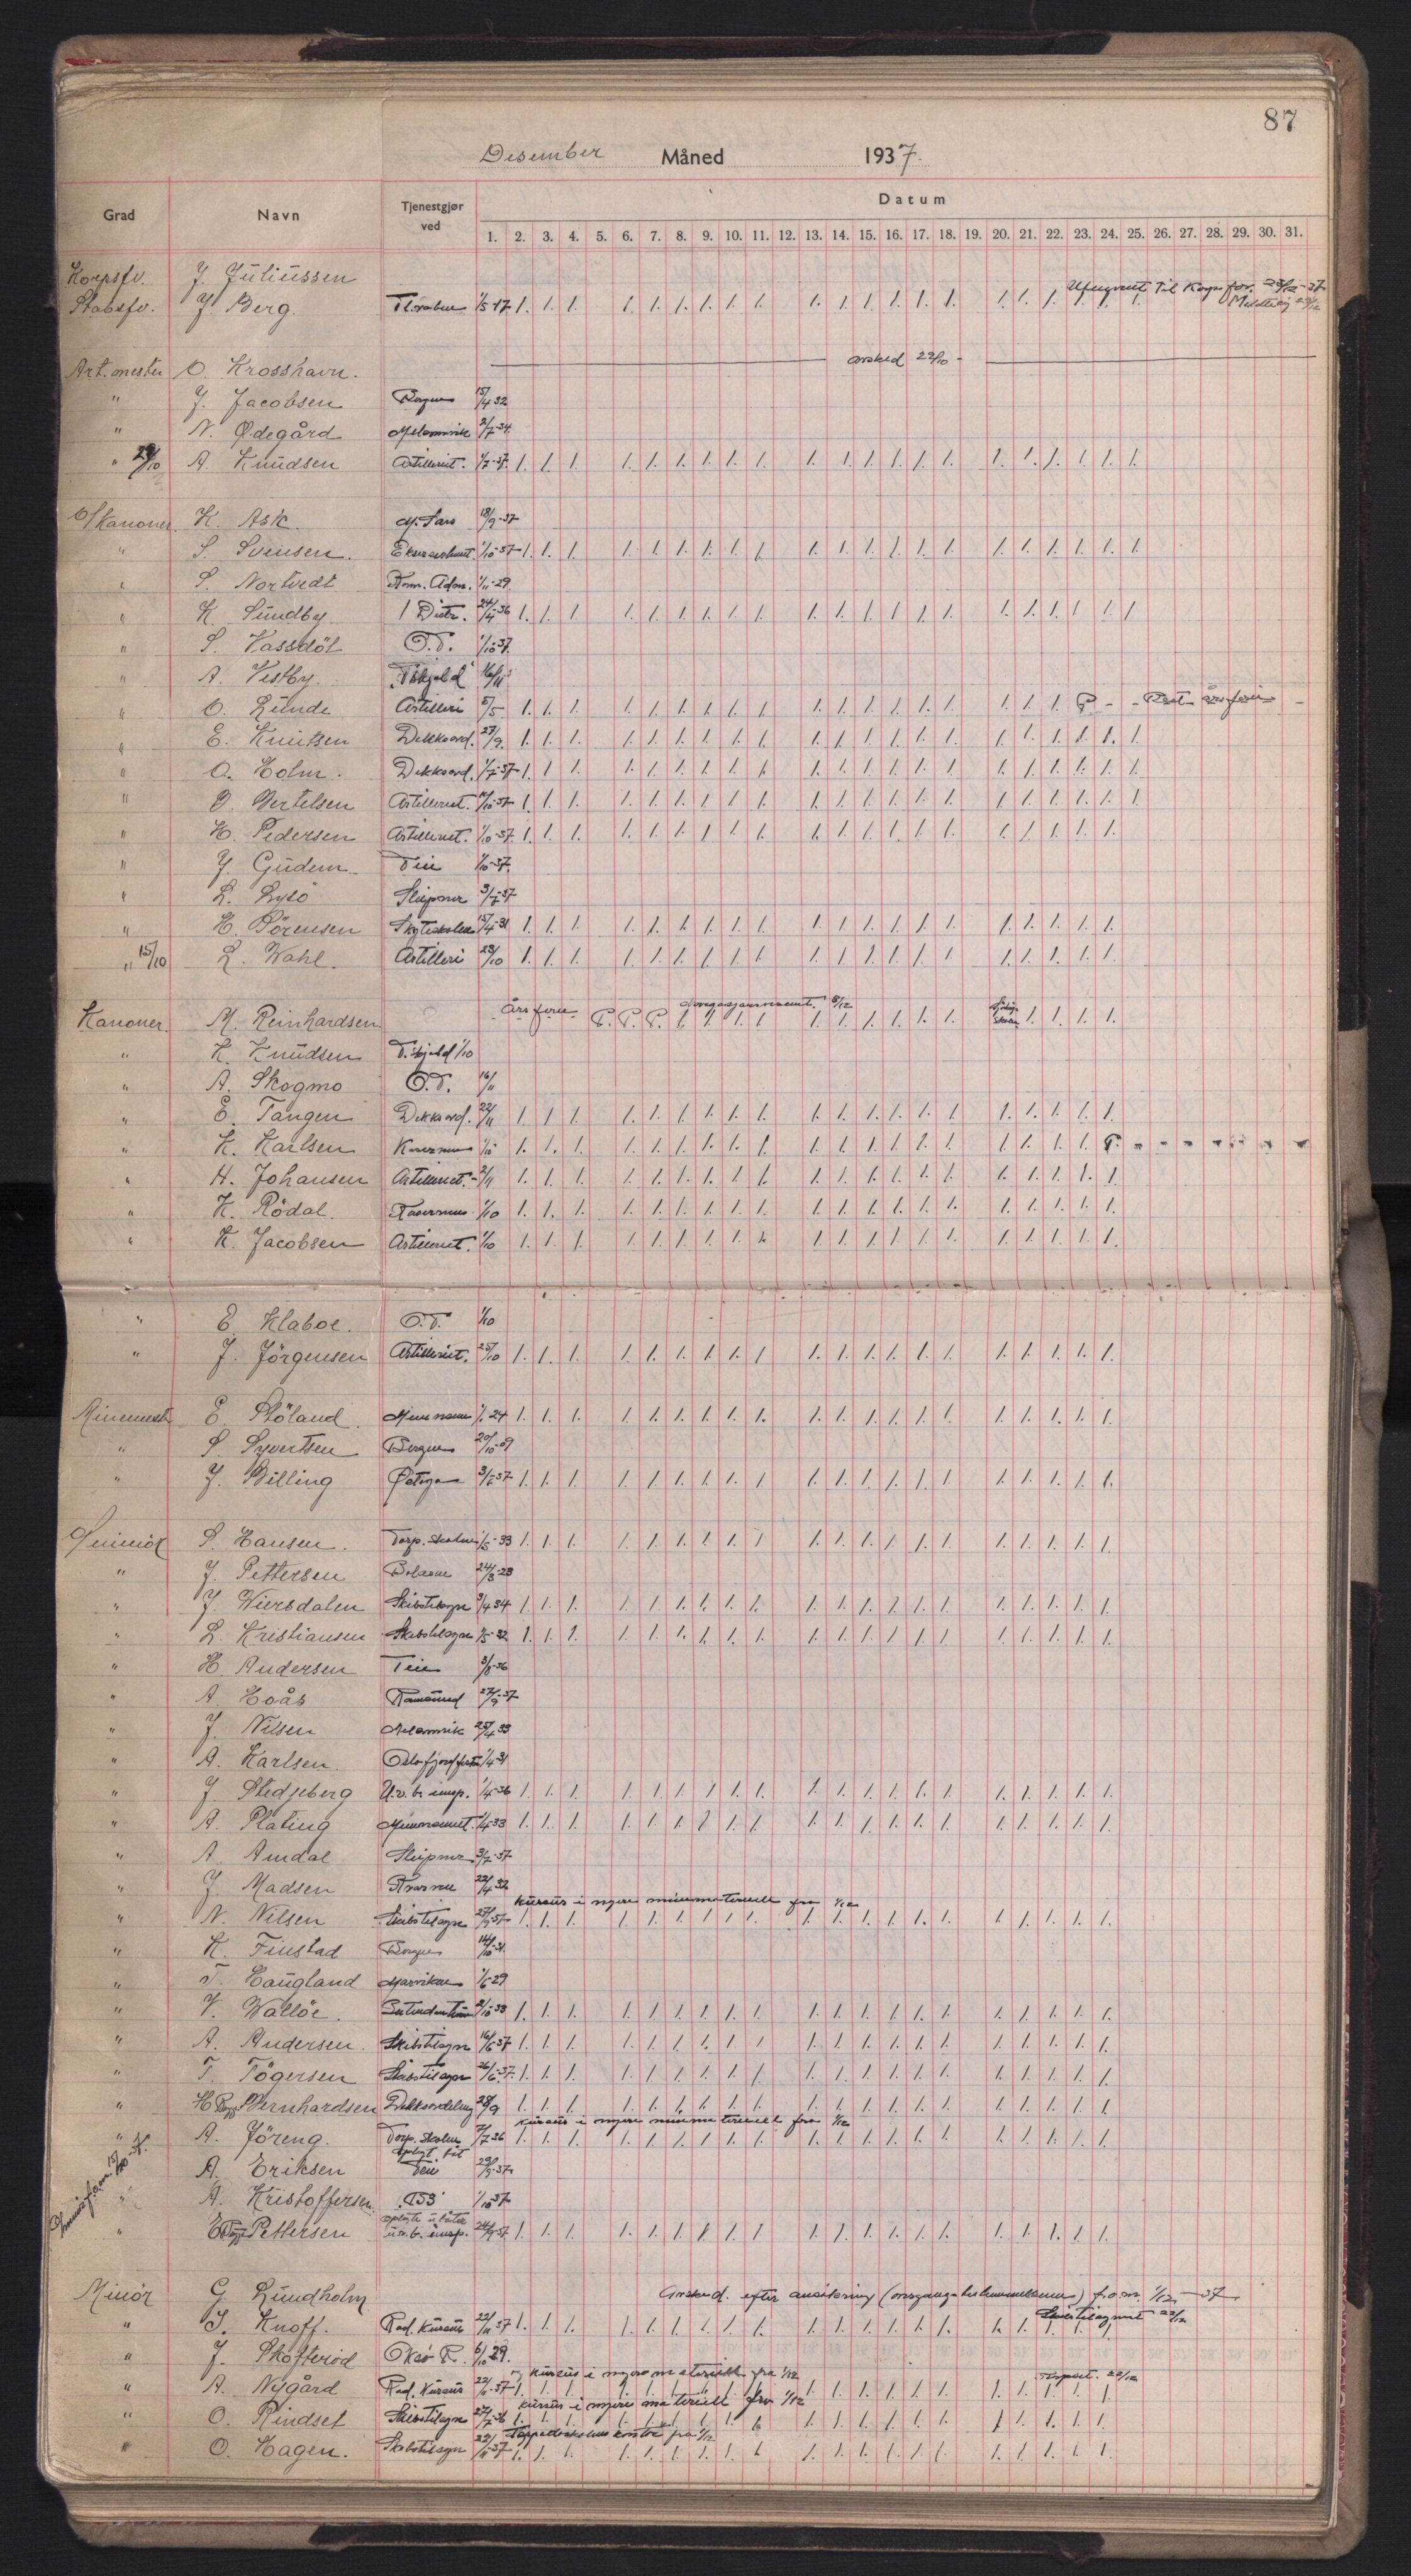 87
Desember Måned 1937.
Grad Navn Tjenestgjør ved Datum
1. 2. 3. 4. 5. 6. 7. 8. 9. 10. 11. 12. 13. 14. 15. 16. 17. 18. 19. 20. 21. 22. 23. 24. 25. 26. 27. 28. 29. 30. 31.
Korpsfv. J. Juliussen
Stabsfv. J. Berg. 1. 1. 1. 1. 1. 1. 1. 1. 1. 1. 1. 1. 1. 1. 1. 1. 1. 1. 1. 1. 1.
Art.mester O. Krosshavn. avsked 29/10
" J. Jacobsen Bergen 15/4 32
" N. Ødegård Melsomvik 2/7-34.
" 29/10 A. Knudsen Artilleriet. 1/7-37. 1. 1. 1. 1. 1. 1. 1. 1. 1. 1. 1. 1. 1. 1. 1. 1. 1. 1. 1. 1. 1.
O/Kanoner K. Ask. M. Sars 18/9-37
" S. Svensen. 1/10-37 1. 1. 1. 1. 1. 1. 1. 1. 1. 1. 1. 1. 1. 1. 1. 1. 1. 1. 1. 1. 1.
" S. Nortvedt Kom. Adm. 1/11-29
" K. Sundby 1 Distr. 24/4-36 1. 1. 1. 1. 1. 1. 1. 1. 1. 1. 1. 1. 1. 1. 1. 1. 1. 1. 1. 1. 1.
" S. Vassdöl O.T. 1/10-37.
" A. Vestby. "Ö.skjold" 16/11
" O. Lunde Artilleri 5/5 1. 1. 1. 1. 1. 1. 1. 1. 1. 1. 1. 1. 1. 1. 1. 1. 1. 1. P - - Rest årsferie -
" E. Knutsen Dekksavd. 27/9. 1. 1. 1. 1. 1. 1. 1. 1. 1. 1. 1. 1. 1. 1. 1. 1. 1. 1. 1. 1. 1.
" O. Holm. Dekksavd. 1/7-37 1. 1. 1. 1. 1. 1. 1. 1. 1. 1. 1. 1. 1. 1. 1. 1. 1. 1. 1. 1. 1.
" B. Bertelsen Artilleriet. 1. 1. 1. 1. 1. 1. 1. 1. 1. 1. 1. 1. 1. 1. 1. 1. 1. 1. 1. 1. 1.
" H. Pedersen Artilleriet. 1/10-37. 1. 1. 1. 1. 1. 1. 1. 1. 1. 1. 1. 1. 1. 1. 1. 1. 1. 1. 1. 1.
" J. Gudem Teie 1/10-37.
" L. Lysö Sleipner 3/7-37
" H. Sörensen Skyteskolen 15/4-31 1. 1. 1. 1. 1. 1. 1. 1. 1. 1. 1. 1. 1. 1. 1. 1. 1. 1. 1. 1.
" 15/10 L. Wahl. Artilleri 23/10 1. 1. 1. 1. 1. 1. 1. 1. 1. 1. 1. 1. 1. 1. 1. 1. 1. 1. 1. 1.
Kanoner. M. Reinhardsen Årsferie P. P. P. 1. 1. 1. 1. 1. 1. 1. 1. 1. 1. 1. 1. 1. 1. 8/12
" K. Knudsen Ö.skjold 1/10
" A. Skogmo O.T. 16/11
" E. Tangen Dekksavd. 22/11 1. 1. 1. 1. 1. 1. 1. 1. 1. 1. 1. 1. 1. 1. 1. 1. 1. 1. 1. 1.
" K. Karlsen 1/10 1. 1. 1. 1. 1. 1. 1. 1. 1. 1. 1. 1. 1. 1. 1. 1. 1. 1. 1. P. - - - - - - -
" H. Johansen Artilleriet. 2/11 1. 1. 1. 1. 1. 1. 1. 1. 1. 1. 1. 1. 1. 1. 1. 1. 1. 1. 1. 1.
" K. Rödal. Kasernens 1/10 1. 1. 1. 1. 1. 1. 1. 1. 1. 1. 1. 1. 1. 1. 1. 1. 1. 1. 1. 1.
" K. Jacobsen Artilleriet. 1/10 1. 1. 1. 1. 1. 1. 1. 1. 1. 1. 1. 1. 1. 1. 1. 1. 1. 1. 1. 1.
" E. Klaboe. O.T. 1/10
" J. Jörgensen Artilleriet. 25/10 1. 1. 1. 1. 1. 1. 1. 1. 1. 1. 1. 1. 1. 1. 1. 1. 1. 1. 1. 1.
Minemest. E. Stöland. 1. 1. 1. 1. 1. 1. 1. 1. 1. 1. 1. 1. 1. 1. 1. 1. 1. 1. 1. 1.
" S. Syvertsen Bergen 20/10-09
" J. Billing 3/7-37 1. 1. 1. 1. 1. 1. 1. 1. 1. 1. 1. 1. 1. 1. 1. 1. 1. 1. 1. 1.
O/minör S. Hansen. Torp. skolen 1/5-33 1. 1. 1. 1. 1. 1. 1. 1. 1. 1. 1. 1. 1. 1. 1. 1. 1. 1. 1. 1.
" J. Pettersen Bolærne 24/3-23
" J. Wiersdalen Skibstilsyn 3/4 34 1. 1. 1. 1. 1. 1. 1. 1. 1. 1. 1. 1. 1. 1. 1. 1. 1. 1. 1. 1.
" L. Kristiansen Skibstilsyn 1/5-32 1. 1. 1. 1. 1. 1. 1. 1. 1. 1. 1. 1. 1. 1. 1. 1. 1. 1. 1. 1.
" H. Andersen Teie 3/8-36
" A. Hoås Ramsund 27/9-37
" J. Nilsen Melsomvik 25/4 33
" A. Karlsen. Oslofjord 1/4-31
" J. Stedjeberg U.v.b. insp. 1/4-36 1. 1. 1. 1. 1. 1. 1. 1. 1. 1. 1. 1. 1. 1. 1. 1. 1. 1. 1. 1.
" A. Plating Minevesenet. 1/4-33 1. 1. 1. 1. 1. 1. 1. 1. 1. 1. 1. 1. 1. 1. 1. 1. 1. 1. 1. 1.
" A. Amdal Sleipner 3/7-37
" J. Madsen Kvarven 22/4 32
kursus i nyere minemateriell fra 1/12
" N. Nilsen Skibstilsyn 27/9-37 1. 1. 1. 1. 1. 1. 1. 1. 1. 1. 1. 1. 1. 1. 1. 1. 1. 1. 1. 1.
" K. Finstad Bergen 14/10-31.
" T. Haugland Marviken 1/6-29
" V. Wallöe. 2/10-33 1. 1. 1. 1. 1. 1. 1. 1. 1. 1. 1. 1. 1. 1. 1. 1. 1. 1. 1. 1.
" A. Andersen. Skibstilsyn 16/6 37 1. 1. 1. 1. 1. 1. 1. 1. 1. 1. 1. 1. 1. 1. 1. 1. 1. 1. 1. 1.
" T. Tögersen Skibstilsyn 26/6-37. 1. 1. 1. 1. 1. 1. 1. 1. 1. 1. 1. 1. 1. 1. 1. 1. 1. 1. 1. 1.
" H. Bernhardsen Dekksavdeling 28/9 1. 1. 1. 1. 1. 1. 1. 1. 1. 1. 1. 1. 1. 1. 1. 1. 1. 1. 1. 1.
kursus i nyere minemateriell fra 1/12
" A. Jöreng. Torp. skolen 7/7 36 1. 1. 1. 1. 1. 1. 1. 1. 1. 1. 1. 1. 1. 1. 1. 1. 1. 1. 1. 1.
A. Eriksen Teie 29/9-37.
" A. Kristoffersen. "B3" 1/10 37
" E. Pettersen u.v.b. insp. 24/9-37 1. 1. 1. 1. 1. 1. 1. 1. 1. 1. 1. 1. 1. 1. 1. 1. 1. 1. 1. 1.
Minör G. Lundholm Avsked. efter ansökning (overgangsbestemmelsene) f.o.m. 1/12 - 37
Skibstilsynet 22/12
" S. Knoff. Rad. Kursus 22/11 37 1. 1. 1. 1. 1. 1. 1. 1. 1. 1. 1. 1. 1. 1. 1. 1. 1. 1. 1. 1.
" J. Skofteröd Oksö R. 6/10 29.
kursus i nyere materiell fra 1/12 22/12
" A. Nygård Rad. Kursus 22/11-37 1. 1. 1. 1. 1. 1. 1. 1. 1. 1. 1. 1. 1. 1. 1. 1. 1. 1. 1. 1.
kursus i nyere materiell fra 1/12
" O. Rindset Skibstilsyn 27/7-36 1. 1. 1. 1. 1. 1. 1. 1. 1. 1. 1. 1. 1. 1. 1. 1. 1. 1. 1. 1.
Torpedoskolens kontor fra 1/12
" O. Hagen. Skibstilsyn 22/11-37 1. 1. 1. 1. 1. 1. 1. 1. 1. 1. 1. 1. 1. 1. 1. 1. 1. 1. 1. 1.